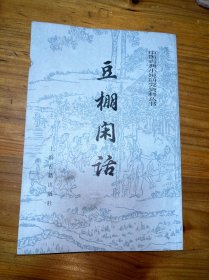 中国古典小说研究资料丛书
豆棚闲话
上海古籍出版社